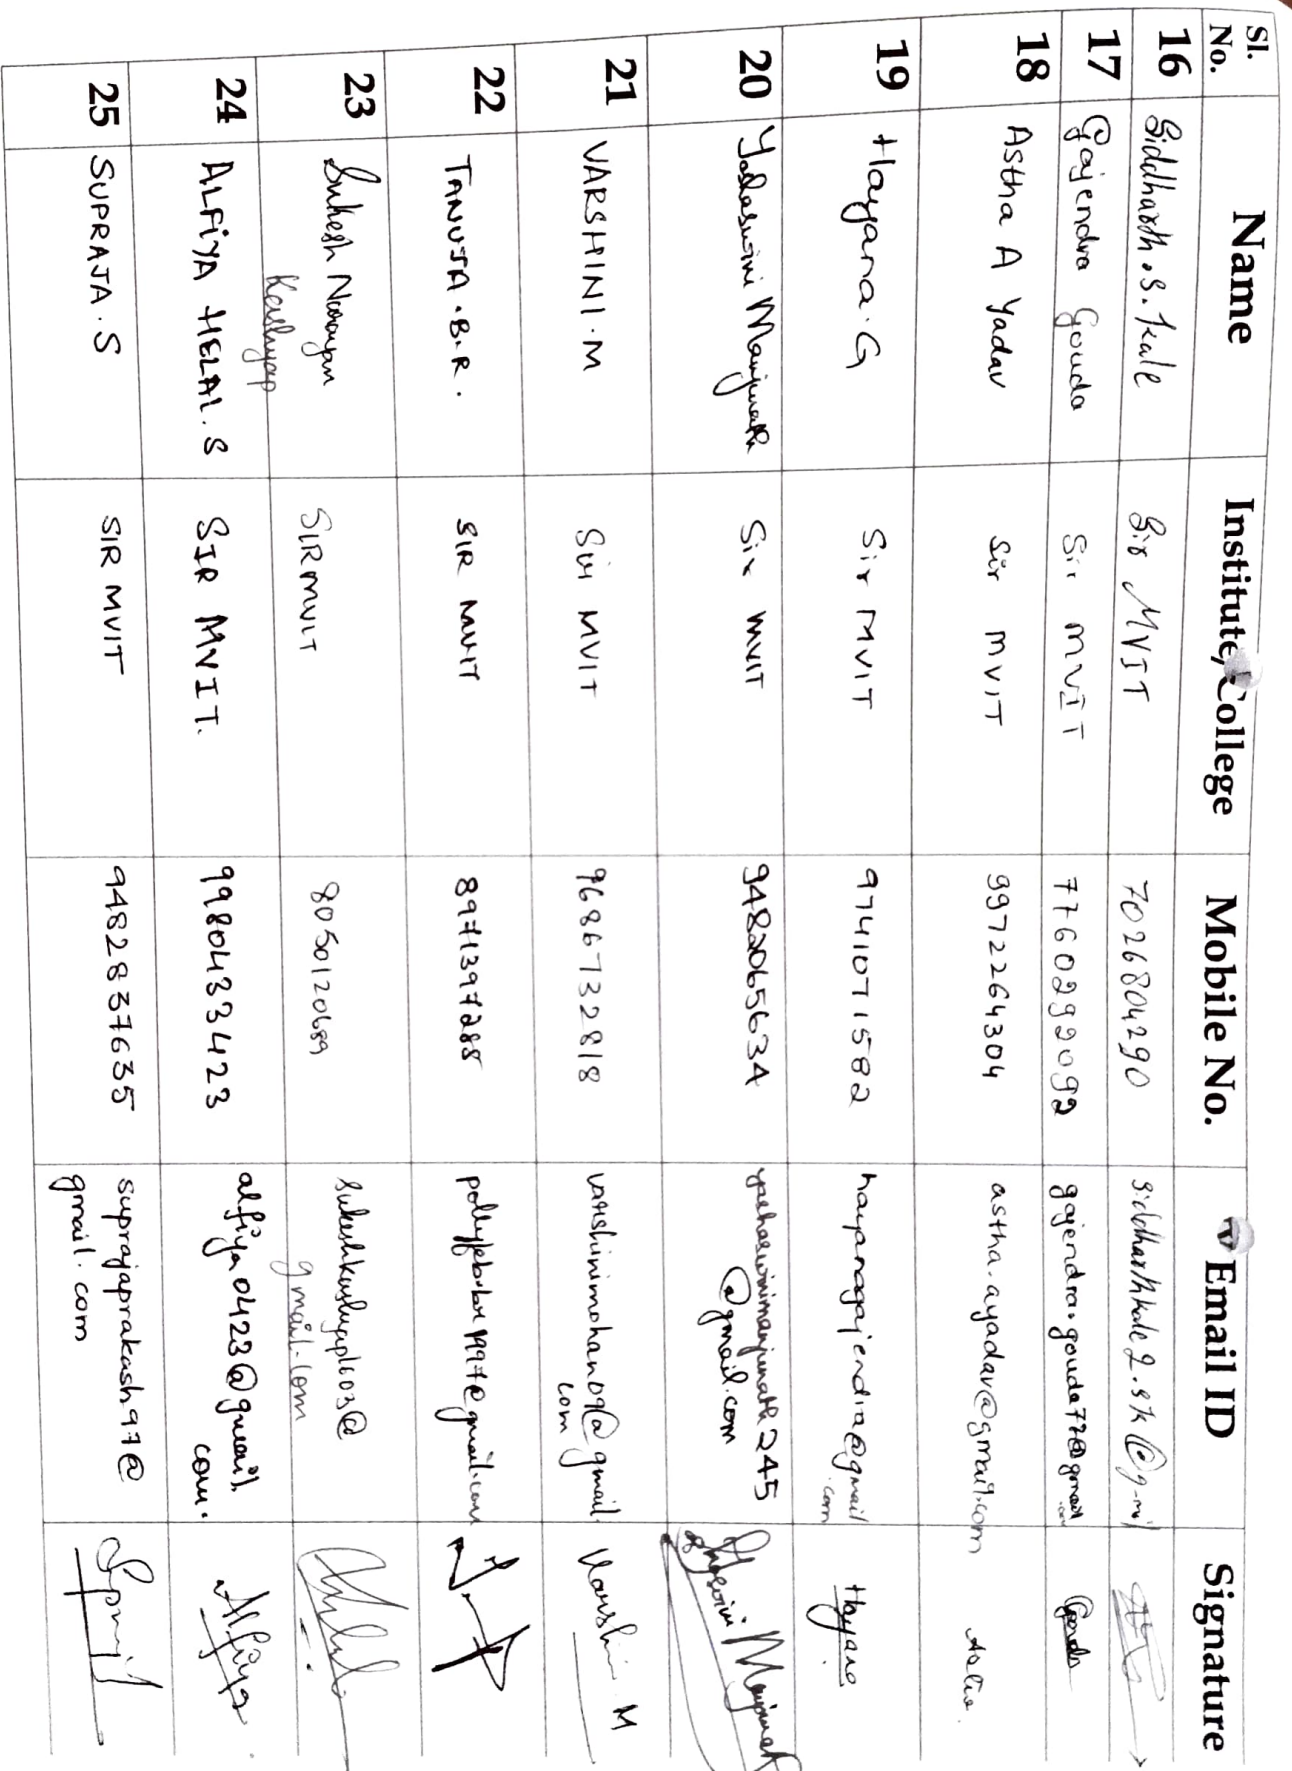 Sl. No. Name Institute/College Mobile No. Email ID Signature
16 Siddharth.S.Kale Sir MVIT 7026804290 siddharthkale2.sk@g-mil
17 Gajendra Gouda Sir MVIT 7760292092 gajendra.gouda77@gmail.com Gouda
18 Astha A Yadav Sir MVIT 9972264304 astha.ayadav@gmail.com Astha.
19 Hayana.G Sir MVIT 9741071582 hayanagajendra@gmail
.com Hayana
20 Yashaswini Manjunath Sir MVIT 9482065634 yashaswinimanjunath245
@gmail.com Yashaswini Manjunath
21 VARSHINI.M Sir MVIT 9686732818 varshinimohan09@gmail.
com Varshini M
22 TANUJA.B.R. SIR MVIT 8971397288 @gmail.com
23 Sukesh Narayan
Kashyap SIR MVIT 8050120689 sukeshkashyap1603@
gmail.com
24 ALFIYA HELAL.S SIR MVIT. 9980433423 alfiya0423@gmail.
com. Alfiya
25 SUPRAJA.S SIR MVIT 9482837635 suprajaprakash97@
gmail.com